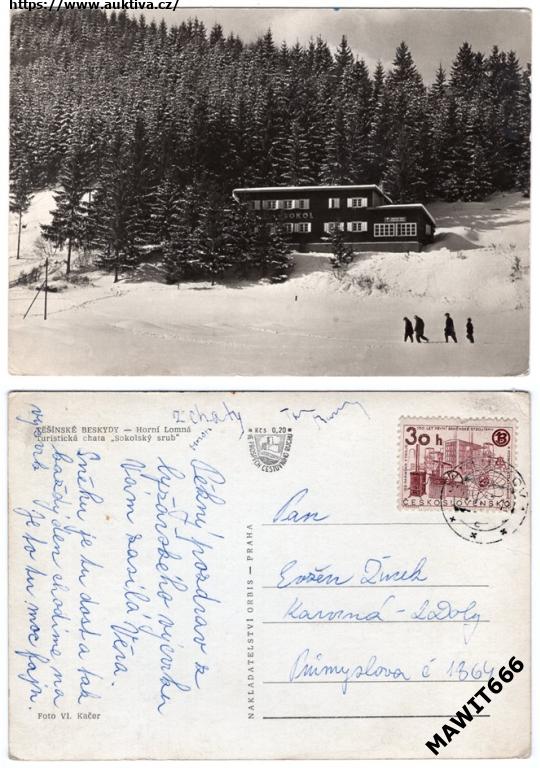 https://www.auktiva.cz/
SOKOL
TĚŠÍNSKÉ BESKYDY — Horní Lomná
Turistická chata „Sokolský srub"
z chaty
Kčs 0,20
VE PROSPĚCH CESTOVNÍHO RUCHU
100 LET PRVNÍ BRNĚNSKÉ STROJÍRNY
30 h
B
ČESKOSLOVENSKO
Pěkný pozdrav z
lyžařského výcviku
Vám zasílá Věra.
Sněhu je tu dost a tak
každý den chodíme na
výcvik
Je to tu moc fajn.
Foto Vl. Kačer
NAKLADATELSTVÍ ORBIS — PRAHA
Pan
Evžen
Karviná - 2 Doly
Průmyslova č 1864
MAWIT666